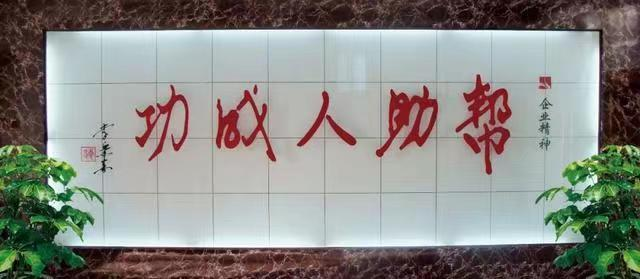 企业精神
帮助人成功